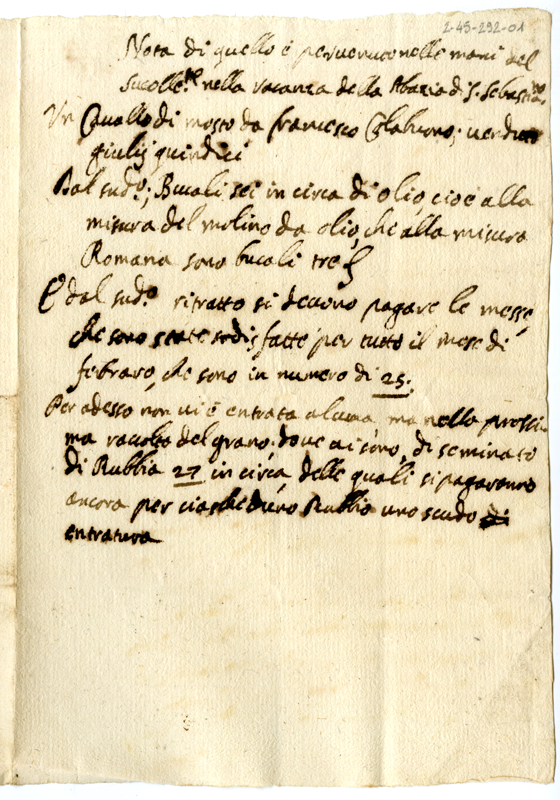 2-45-292-01
Nota di quello è pervenuto nelle mani del
succolle.re nella vacanza della Abazia di S. Sebastiano
Un Cavallo di mosto da francesco venduto
giulij quindici
Dal sud.o; Bucali sei in circa di olio, cioè alla
misura del molino da olio, che alla misura
Romana sono bucali tre
E dal sud.o ritratto si devono pagare le messe,
che sono state sodisfatte per tutto il mese di
febraro, che sono in numero di 25;
Per adesso non vi è entrata alcuna, ma nella prossi-
ma raccolta del grano; dove vi sono di seminato
di Rubbia 27 in circa, delle quali si pagaranno
ancora per ciascheduno Rubbio uno scudo di
entratura